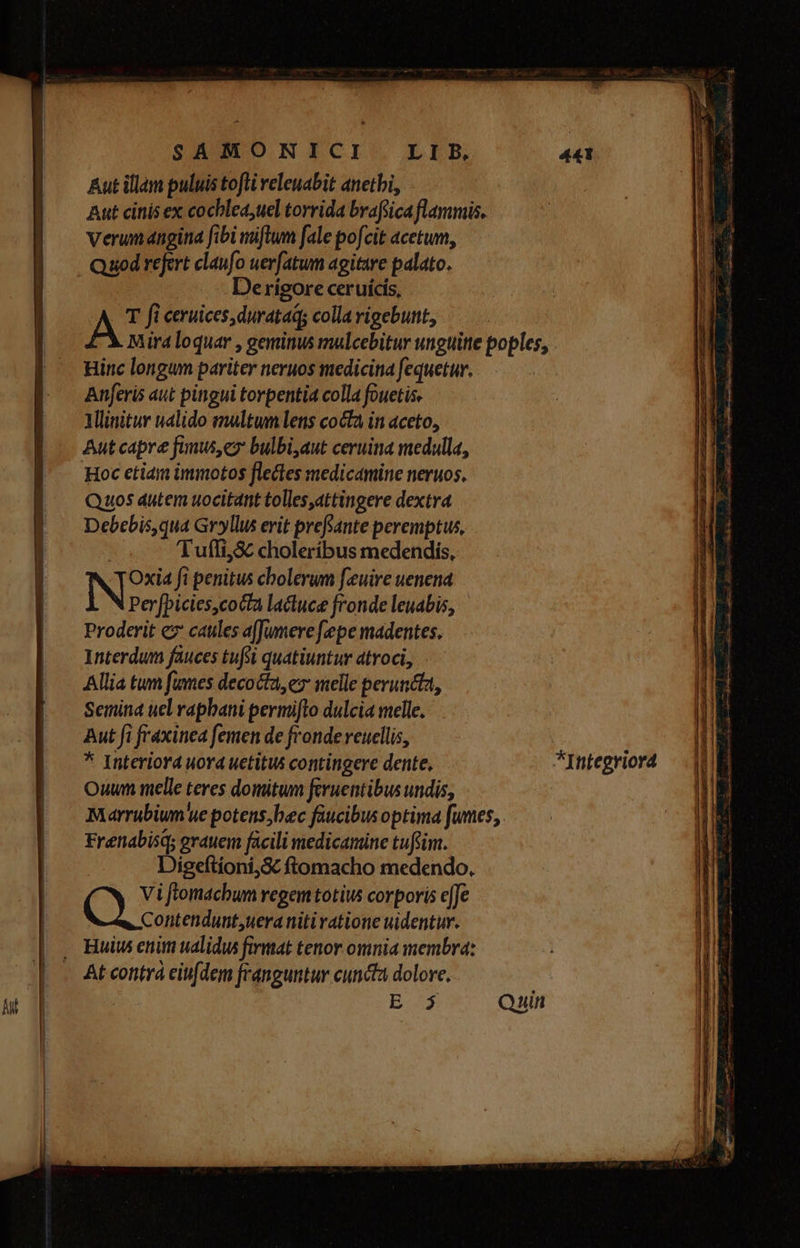 SAMONICI LIB. 441
Aut illam puluis tosti releuabit anethi,
Aut cinis ex cochlea,uel torrida brassica flammis.
Verum angina sibi mistum sale poscit acetum,
Quod refert clauso uersatum agitare palato.
De rigore ceruicis.
AT si ceruices,durataq; colla rigebunt,
Mira loquar, geminus mulcebitur unguine poples,
Hinc longum pariter neruos medicina sequetur.
Anseris aut pingui torpentia colla fouetis.
Illinitur ualido multum lens cocta in aceto,
Aut capre fimus,& bulbi,aut ceruina medulla,
Hoc etiam immotos flectes medicamine neruos.
Quos autem uocitant tolles,attingere dextra
Debebis,qua Gryllus erit pressante peremptus.
Tussi,& choleribus medendis.
NOxia si penitus cholerum sæuire uenena
Perspicies,cocta lactucæ fronde leuabis,
Proderit & caules assumere sæpe madentes.
Interdum fauces tussi quatiuntur atroci,
Allia tum sumes decocta,& melle peruncta,
Semina uel raphani permisto dulcia melle.
Aut si fraxinea semen de fronde reuellis,
* Interiora uora uetitus contingere dente. *Integriora
Ouum melle teres domitum feruentibus undis,
Marrubium'ue potens,hæc faucibus optima sumes,
Frænabisq; grauem facili medicamine tussim.
Digestioni,& stomacho medendo.
QVi stomachum regem totius corporis esse
Contendunt,uera niti ratione uidentur.
Huius enim ualidus firmat tenor omnia membra:
At contrà eiusdem franguntur cuncta dolore.
E 5 Quin
Aut